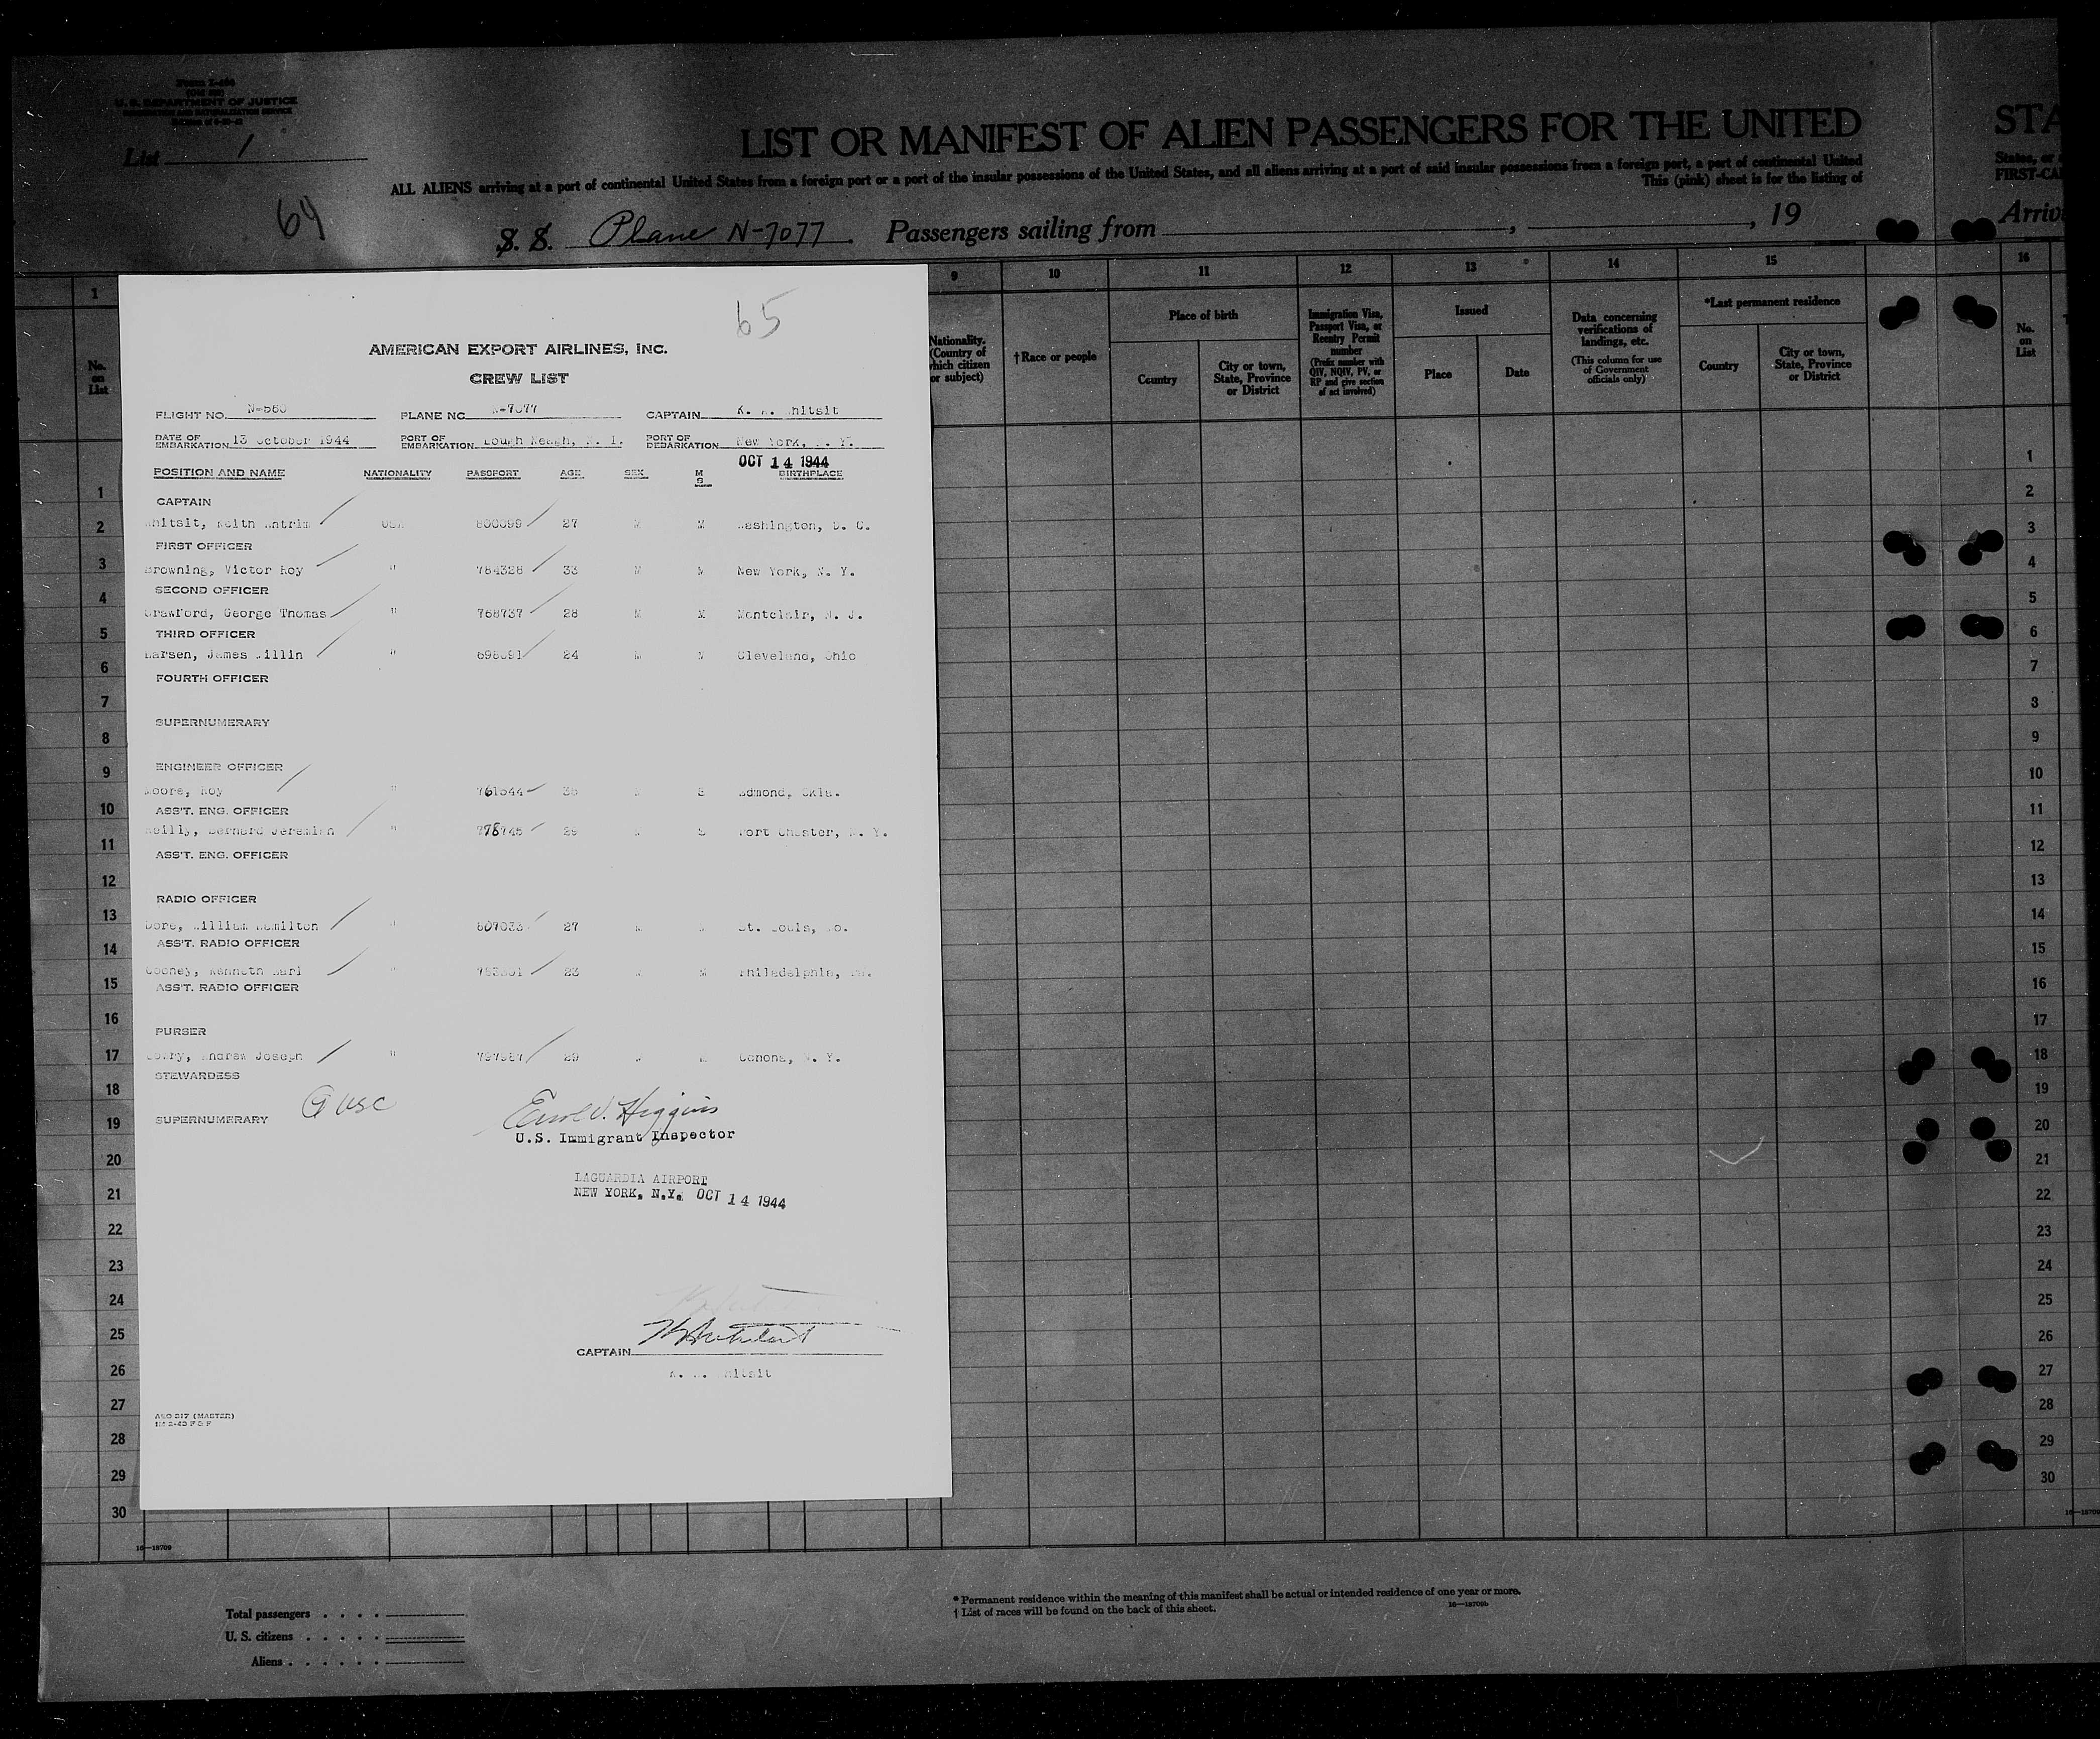 Form I-466
U. S. DEPARTMENT OF JUSTICE
IMMIGRATION AND NATURALIZATION SERVICE
List 1
LIST OR MANIFEST OF ALIEN PASSENGERS FOR THE UNITED STA
ALL ALIENS arriving at a port of continental United States from a foreign port or a port of the insular possessions of the United States, and all aliens arriving at a port of said insular possessions from a foreign port, a port of continental United States, or
This (pink) sheet is for the listing of FIRST-CA
64
S. S. Plane N-7077. Passengers sailing from , , 19 Arriv
1 9 10 11 12 13 14 15 16
No. on List
Nationality. (Country of which citizen or subject)
†Race or people
Place of birth
Country
City or town, State, Province or District
Immigration Visa, Passport Visa, or Reentry Permit number
(Prefix number with QIV, NQIV, PV, or RP and give section of act involved)
Issued
Place
Date
Data concerning verifications of landings, etc.
(This column for use of Government officials only)
*Last permanent residence
Country
City or town, State, Province or District
No. on List
65
AMERICAN EXPORT AIRLINES, INC.
CREW LIST
FLIGHT NO. N-560 PLANE NO. N-7077 CAPTAIN K. A. Whitsit
DATE OF EMBARKATION 13 October 1944 PORT OF EMBARKATION Lough Neagh, N. I. PORT OF DEBARKATION New York, N. Y.
OCT 14 1944
POSITION AND NAME NATIONALITY PASSPORT AGE SEX M S BIRTHPLACE
CAPTAIN
Whitsit, Keith Antrim USA 27 M M Washington, D. C.
FIRST OFFICER
Browning, Victor Roy " 784328 33 M M New York, N. Y.
SECOND OFFICER
Crawford, George Thomas " 768737 28 M M Montclair, N. J.
THIRD OFFICER
Larsen, James " 24 M M Cleveland, Ohio
FOURTH OFFICER
SUPERNUMERARY
ENGINEER OFFICER
Moore, Roy " 761544 M S Edmond, Okla.
ASS'T. ENG. OFFICER
Reilly, Bernard Jeremiah " 778745 29 M S Port Chester, N. Y.
ASS'T. ENG. OFFICER
RADIO OFFICER
Dore, William Hamilton " 807033 27 M St. Louis, Mo.
ASS'T. RADIO OFFICER
Cooney, Kenneth Earl " 23 M M Philadelphia, Pa.
ASS'T. RADIO OFFICER
PURSER
Andrew Joseph " 29 M N. Y.
STEWARDESS
9 USC
SUPERNUMERARY
Higgins
U.S. Immigrant Inspector
LAGUARDIA AIRPORT
NEW YORK, N.Y. OCT 14 1944
CAPTAIN
K. A. Whitsit
AEO 317 (MASTER)
1M 2-43 F & F
1
2
3
4
5
6
7
8
9
10
11
12
13
14
15
16
17
18
19
20
21
22
23
24
25
26
27
28
29
30
1
2
3
4
5
6
7
3
9
10
11
12
13
14
15
16
17
18
19
20
21
22
23
24
25
26
27
28
29
30
16—18709
16—18709
Total passengers . . . .
U. S. citizens . . . . .
Aliens . . . . . .
* Permanent residence within the meaning of this manifest shall be actual or intended residence of one year or more.
† List of races will be found on the back of this sheet.
16—18709b